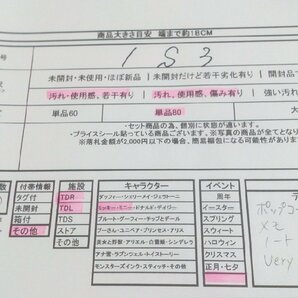 商品大きさ目安 端まで約18CM
号
1 S 3
未開封・未使用・ほぼ新品
未開封だけど若干劣化有り
汚れ・使用感、若干有り
汚れ、使用感、傷み有り
単品60
単品80
大
・セット商品の為、個別に状態が違います。
・プライスシール貼っている商品ございます。※写真の商品が全てと
※落札金額が2,000円以下の場合、商品梱包になる可能性があります
付帯情報
施設
キャラクター
イベント
タグ付
TDR
ダッフィー・シェリーメイ・ジェラトーニ
周年
未開封
TDL
ミッキー・ミニー・ドナルド・デイジー
イースター
箱付
TDS
プルート・グーフィー・チップとデール
スプリング
その他
ストア
プーさん・ユニベア・プリンセス・アリス
スウィート
その他
美女と野獣・アリエル・白雪姫・シンデレラ
ハロウィン
アナ雪・ラプンツェル・トイストーリー
クリスマス
モンスターズインク・スティッチ・その他
正月・七夕
ポップコー
メモ
ート
Very